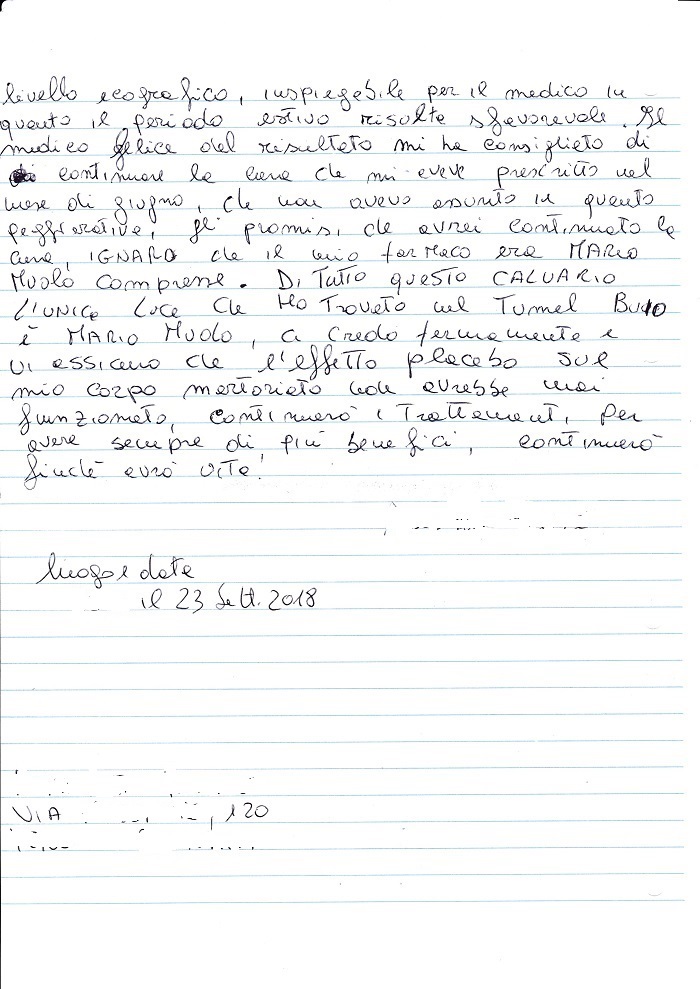 livello ecografico, inspiegabile per il medico in
quanto il periodo estivo risulta sfavorevole. Il
medico felice del risultato mi ha consigliato di
continuare la cura che mi aveva prescritto nel
mese di giugno, che non avevo assunto in quanto
peggiorativa, gli promisi che avrei continuato la
cura, IGNARO che il mio farmaco era MARIO
MUOLO compresse. Di Tutto questo CALVARIO
l'UNICA Luce che Ho Trovato nel Tunnel Buio
è MARIO MUOLO, ci credo fermamente e
vi assicuro che l'effetto placebo sul
mio corpo martoriato non avrebbe mai
funzionato, continuerò i Trattamenti per
avere sempre di più benefici, continuerò
finché avrò vita!
luogo e data
il 23 Sett. 2018
VIA , 120